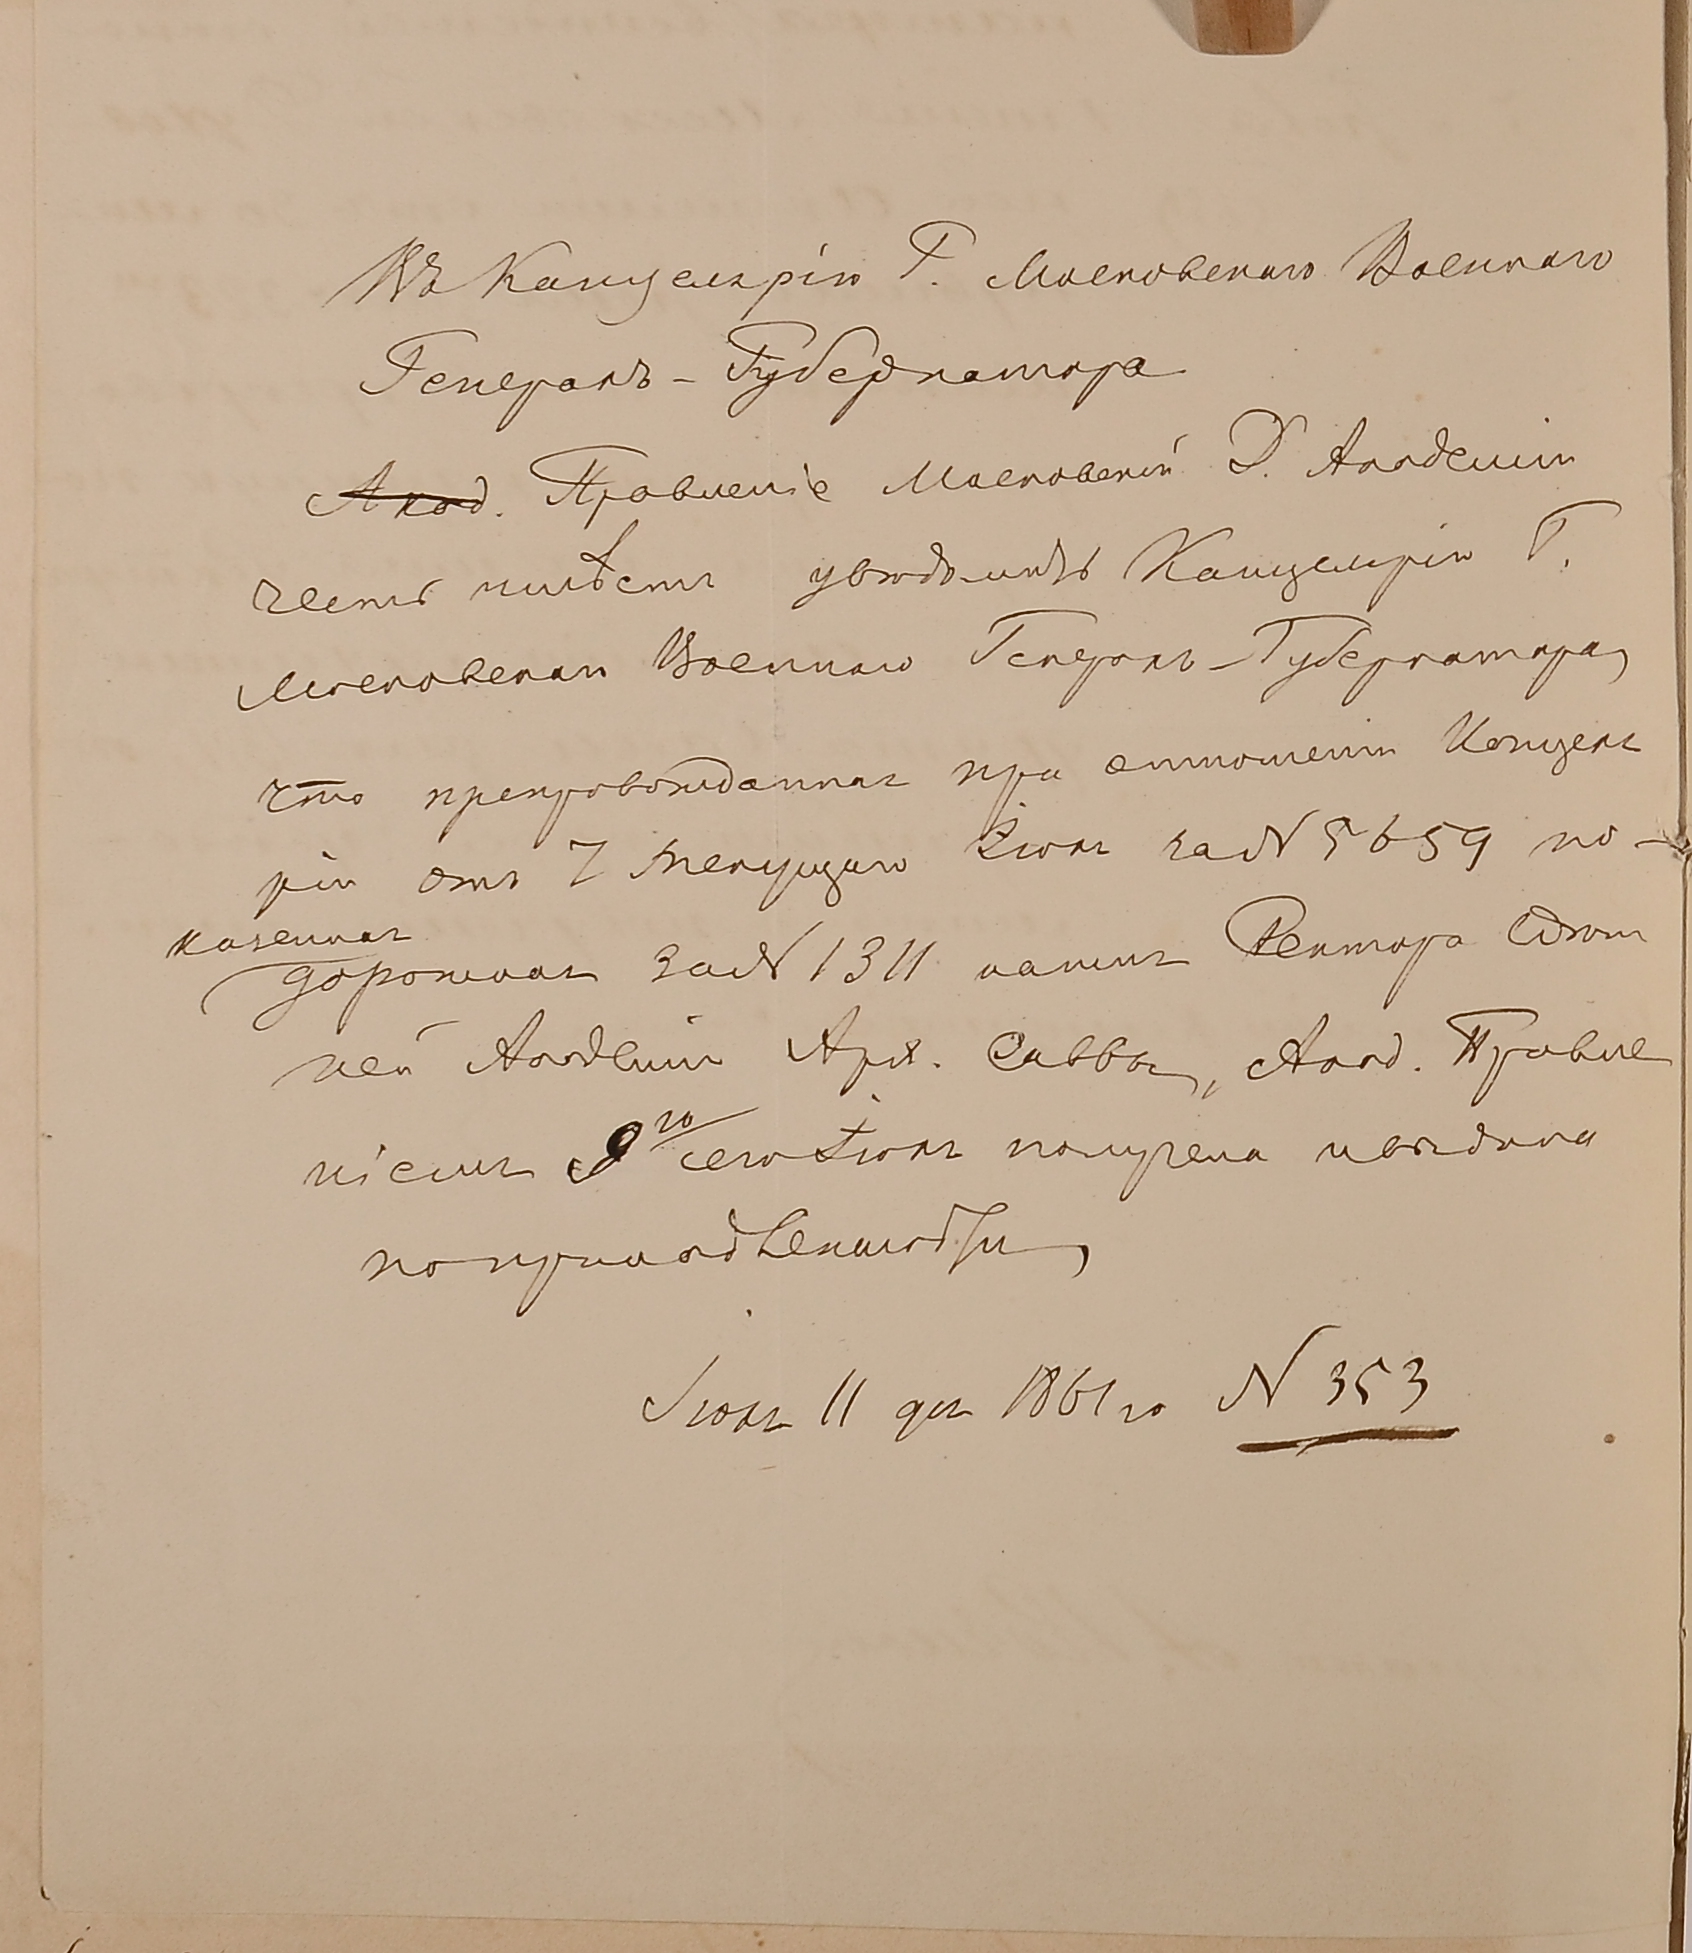 Въ Канцелярію Г. Московскаго Военнаго
Генералъ-Губернатора
Акад. Правленіе Московской Д. Академіи
честь имѣетъ увѣдомить Канцелярію Г.
Московскаго Военнаго Генералъ-Губернатора,
что препровожденная при отношеніи Канцеля
ріи отъ 7 текущаго Іюня за N 5659 по-
казенная
дорожная за N 1311 на имя Ректора здѣш
ней Академіи Арх. Саввы, Акад. Правле
ніемъ 9го сего Іюня получена и выдана
по принадлежности,
Іюня 11 дня 1861 го N 353